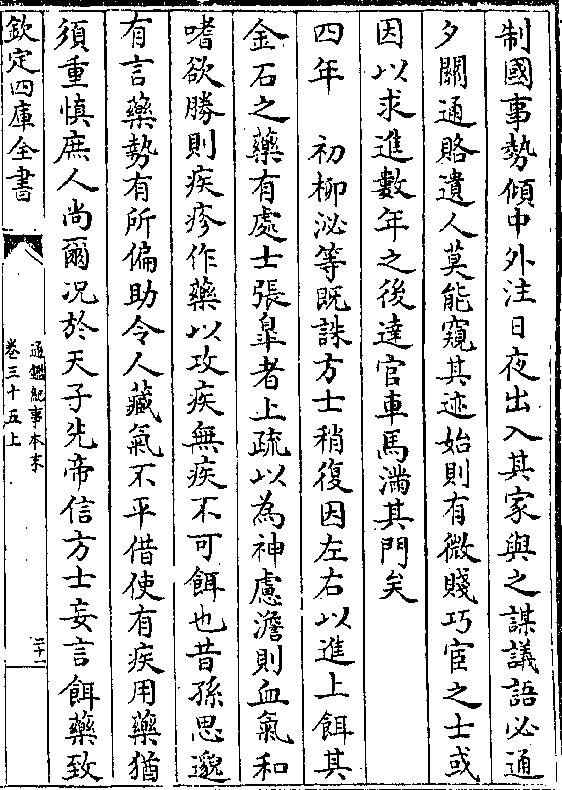 制國事勢傾中外注日夜出入其家與之謀議語必通
夕關通賂遺人莫能窺其迹始則有微賤巧宦之士或
因以求進數年之後達官車馬滿其門矣
四年　初柳泌等既誅方士稍復因左右以進上餌其
金石之藥有處士張臯者上疏以為神慮澹則血氣和
嗜欲勝則疾疹作藥以攻疾無疾不可餌也昔孫思邈
有言藥勢有所偏助令人藏氣不平借使有疾用藥猶
須重慎庶人尚爾况於天子先帝信方士妄言餌藥致
欽定四庫全書
通鑑紀事本末
卷三十五上
二十一